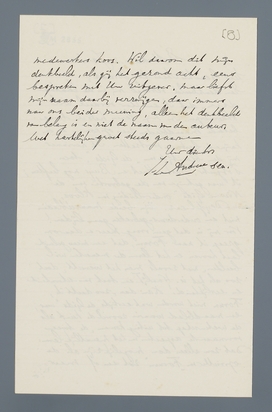 [8]
medewerkers koos. Wil daarom dit mijn
denkbeeld, als gij het gezond acht, eens
bespreken met Uw uitgever, maar liefst
mijn naam daarbij verzwijgen, daar immers
naar ons beider meening, alleen het denkbeeld
van belang is en niet de naam van den auteur.
Met hartelijken groet steeds gaarne
Uw dw.